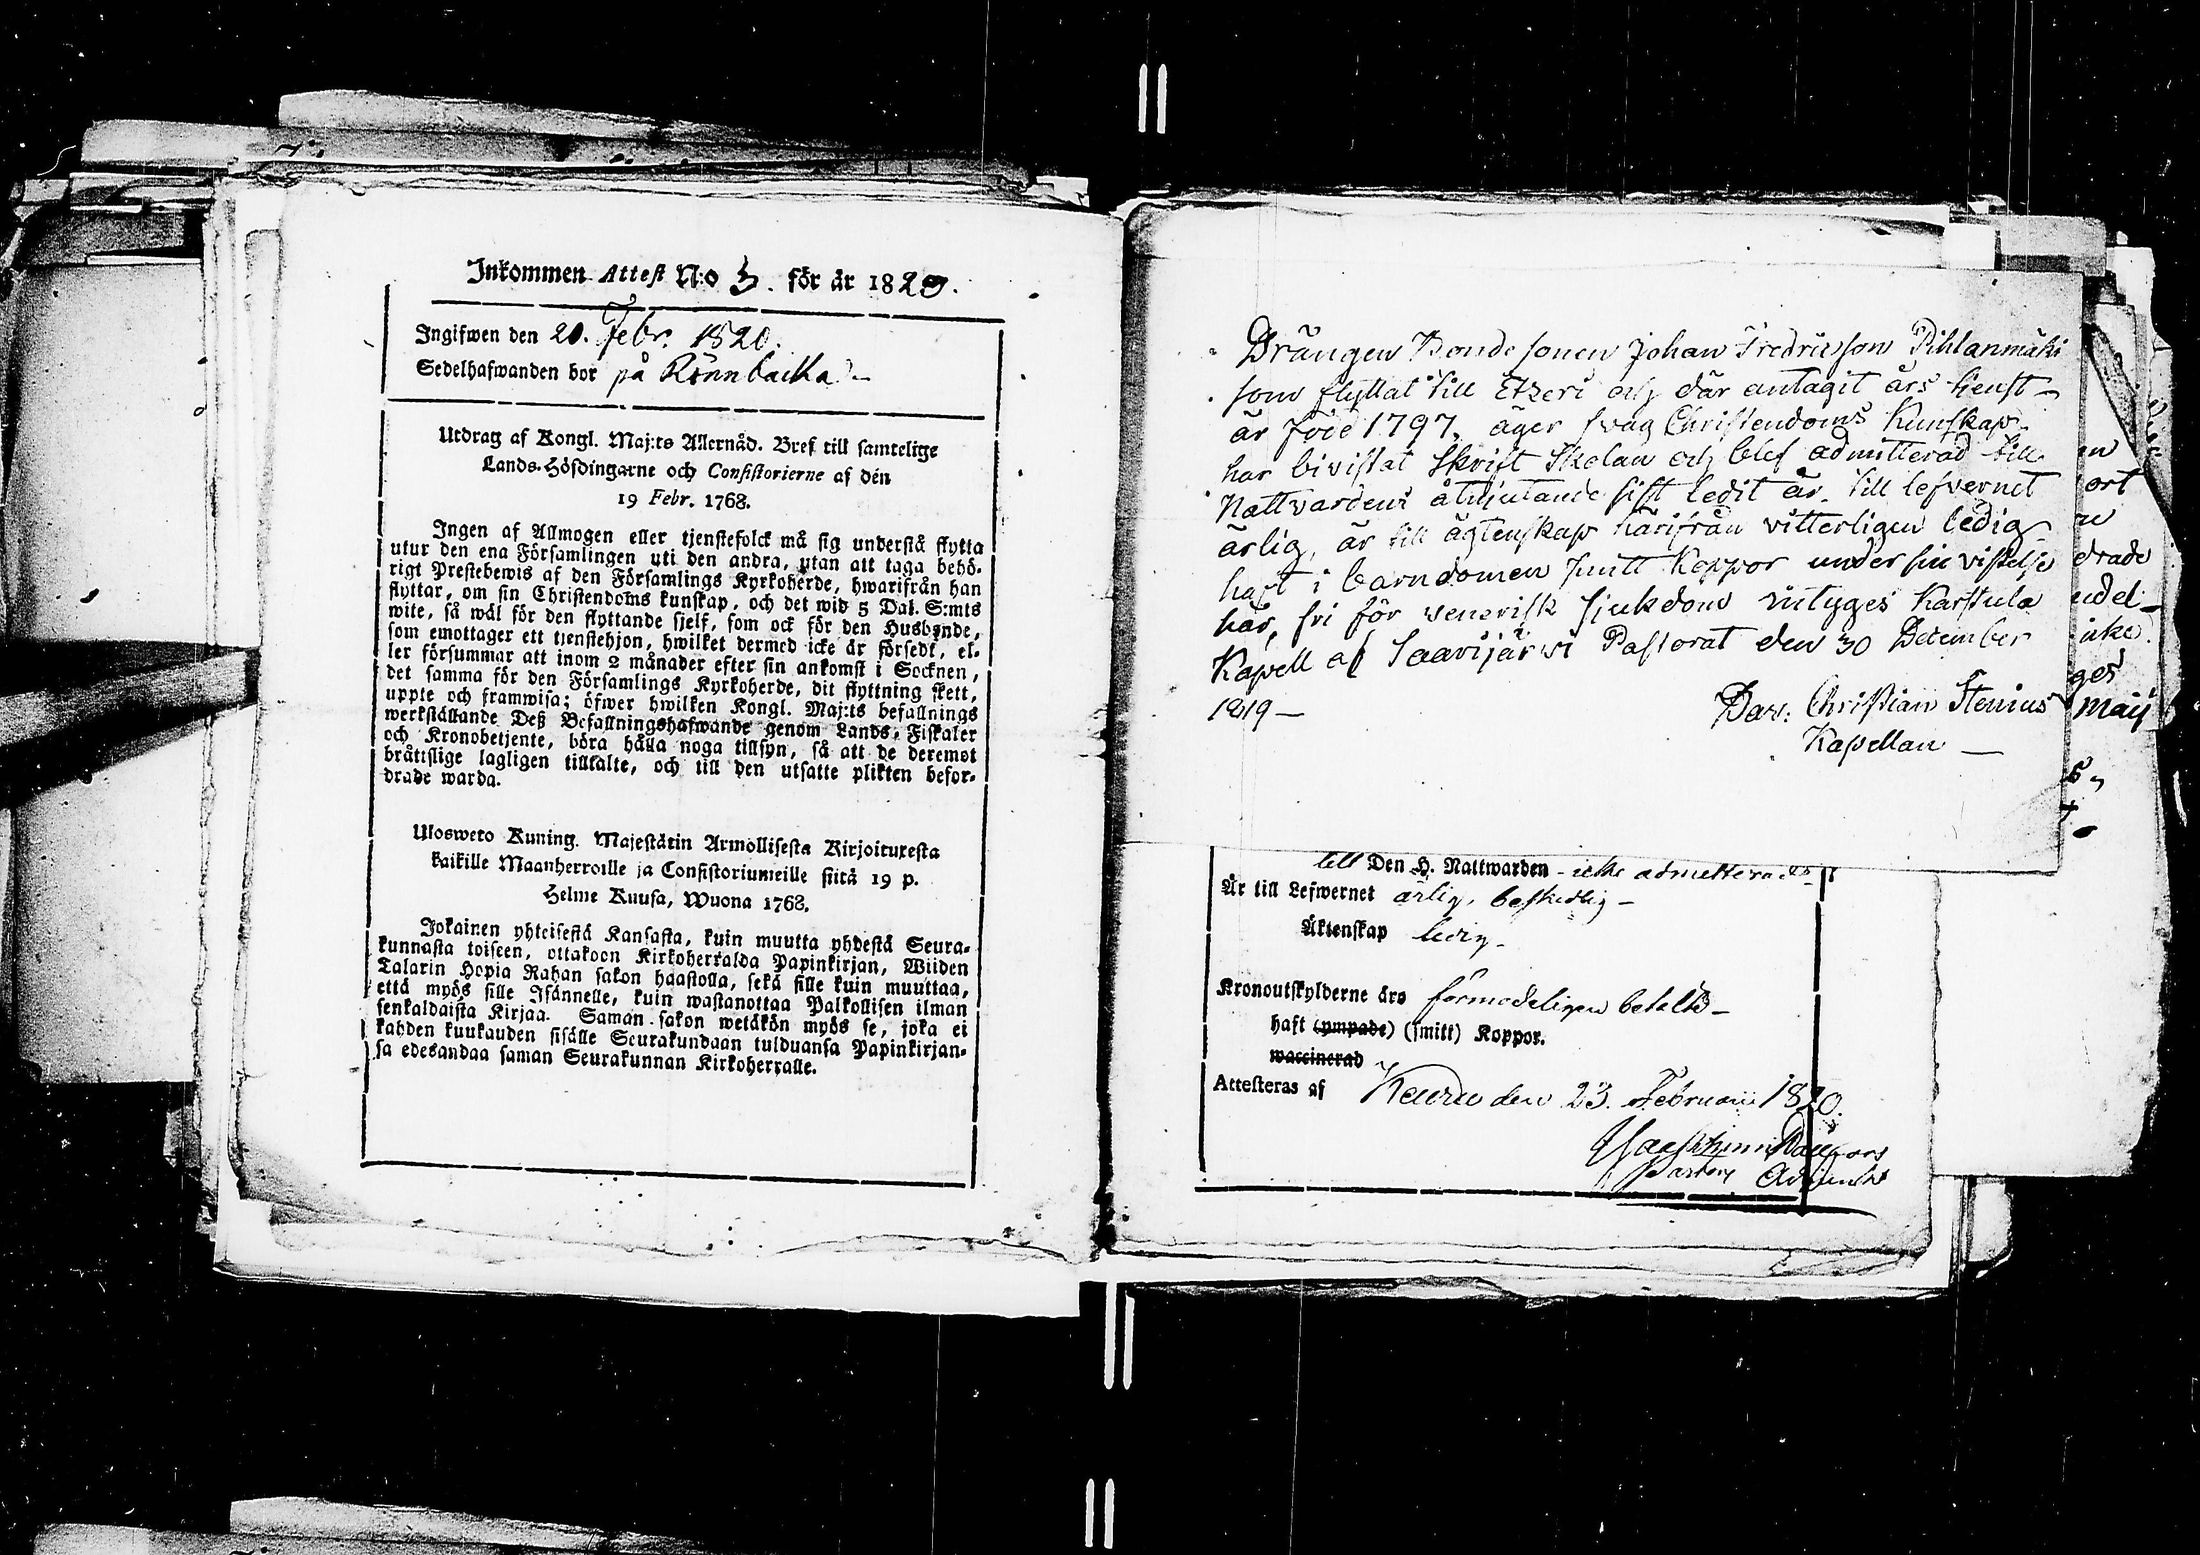 Inkommen Attest N:o 3. för år 1820.
Ingifwen den 20. Febr. 1820.
Sedelhafwanden bor på Rönnbacka
Utdrag af Kongl. Maj:ts Allernåd. Bref till samtelige
Lands-Höfdingarne och Consistorierne af den
19 Febr. 1768.
Ingen af Allmogen eller tjenstefolck må sig understå flytta
utur den ena Församlingen uti den andra, utan att taga behö-
rigt Prestebewis af den Församlings Kyrkoherde, hwarifrån han
flyttar, om sin Christendoms kunskap, och det wid 5 Dal. S:mts
wite, så wäl för den flyttande sjelf, som ock för den Husbonde,
som emottager ett tjenstehjon, hwilket dermed icke är försedt, el-
ler försummar att inom 2 månader efter sin ankomst i Socknen,
det samma för den Församlings Kyrkoherde, dit flyttning skett,
uppte och framwisa; öfwer hwilken Kongl. Maj:ts befallnings
werkställande Deß Befallningshafwande genom Lands-Fiskaler
och Kronobetjente, böra hålla noga tillsyn, så att de deremot
bråttslige lagligen tilltalte, och till den utsatte plikten befor-
drade warda.
Ulosweto Kuning. Majestätin Armollisesta Kirjoituxesta
kaikille Maanherroille ja Consistoriumeille siitä 19 p.
Helme Kuusa, Wuona 1768.
Jokainen yhteisestä Kansasta, kuin muutta yhdestä Seura-
kunnasta toiseen, ottakoon Kirkoherralda Papinkirjan, Wiiden
Talarin Hopia Rahan sakon haastolla, sekä sille kuin muuttaa,
että myös sille Isännelle, kuin wastanottaa Palkollisen ilman
senkaldaista Kirjaa. Saman sakon wetäkön myös se, joka ei
kahden kuukauden sisälle Seurakundaan tulduansa Papinkirjan-
sa edesandaa saman Seurakunnan Kirkoherralle.
Drängen Bondesonen Johan Fredricson Pihlanmäki
som flyttat till Etzeri och där antagit års tienst
är född 1797, äger svag Christendoms Kunskap
har bivistat Skrift Skolan och blef admitterad till
Nattvardens åtnjutande sist ledit år. till lefvernet
ärlig, är till ägtenskap härifrån vitterligen ledig
haft i barndomen smitt Koppor under sin vistelse
här, fri för venerisk sjukdom intyges Karstula
Kapell af Saarijärvi Pastorat den 30 December
1819
Dav: Christian Stenius
Kapellan
ort
drade
udel
ges
Maij
till Den H. Nattwarden icke admitterad
Är till Lefwernet ärlig, beskedlig
Äktenskap ledig
Kronoutskylderne äro förmodeligen betalte
haft (ympade) (smitt) Koppor.
waccinerad
Attesteras af Keuru den 23. Februarii 1820.
Adjunkt